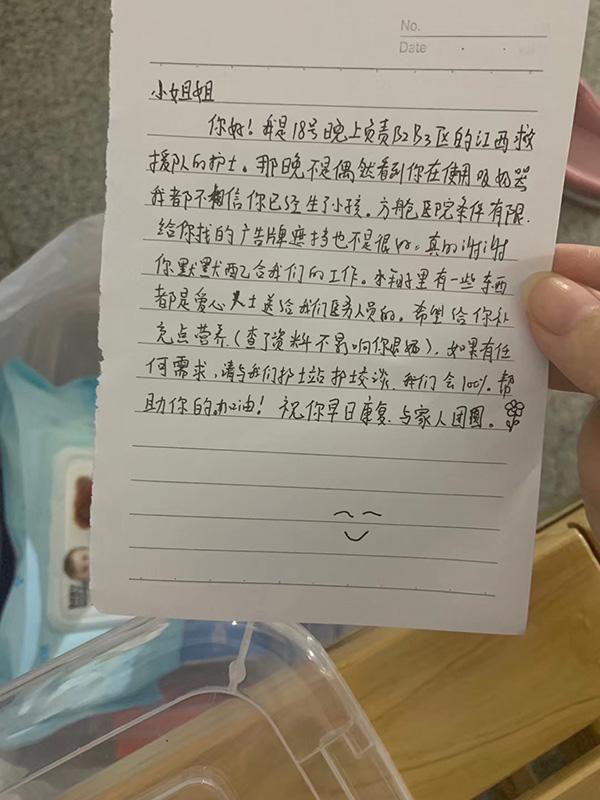 No.
Date
小姐姐
你好！我是18号晚上负责B2B3区的江西救
援队的护士。那晚不是偶然看到你在使用吸奶器
我都不相信你已经生了小孩。方舱医院条件有限.
给你找的广告牌遮挡也不是很好。真的谢谢
你默默配合我们的工作。水和盒子里有一些东西
都是爱心人士送给我们医务人员的。希望给你补
充点营养(查了资料不影响你喂奶)。如果有任
何需求,请与我们护士站护士交谈.我们会100%帮
助你的。加油！祝你早日康复.与家人团圆。